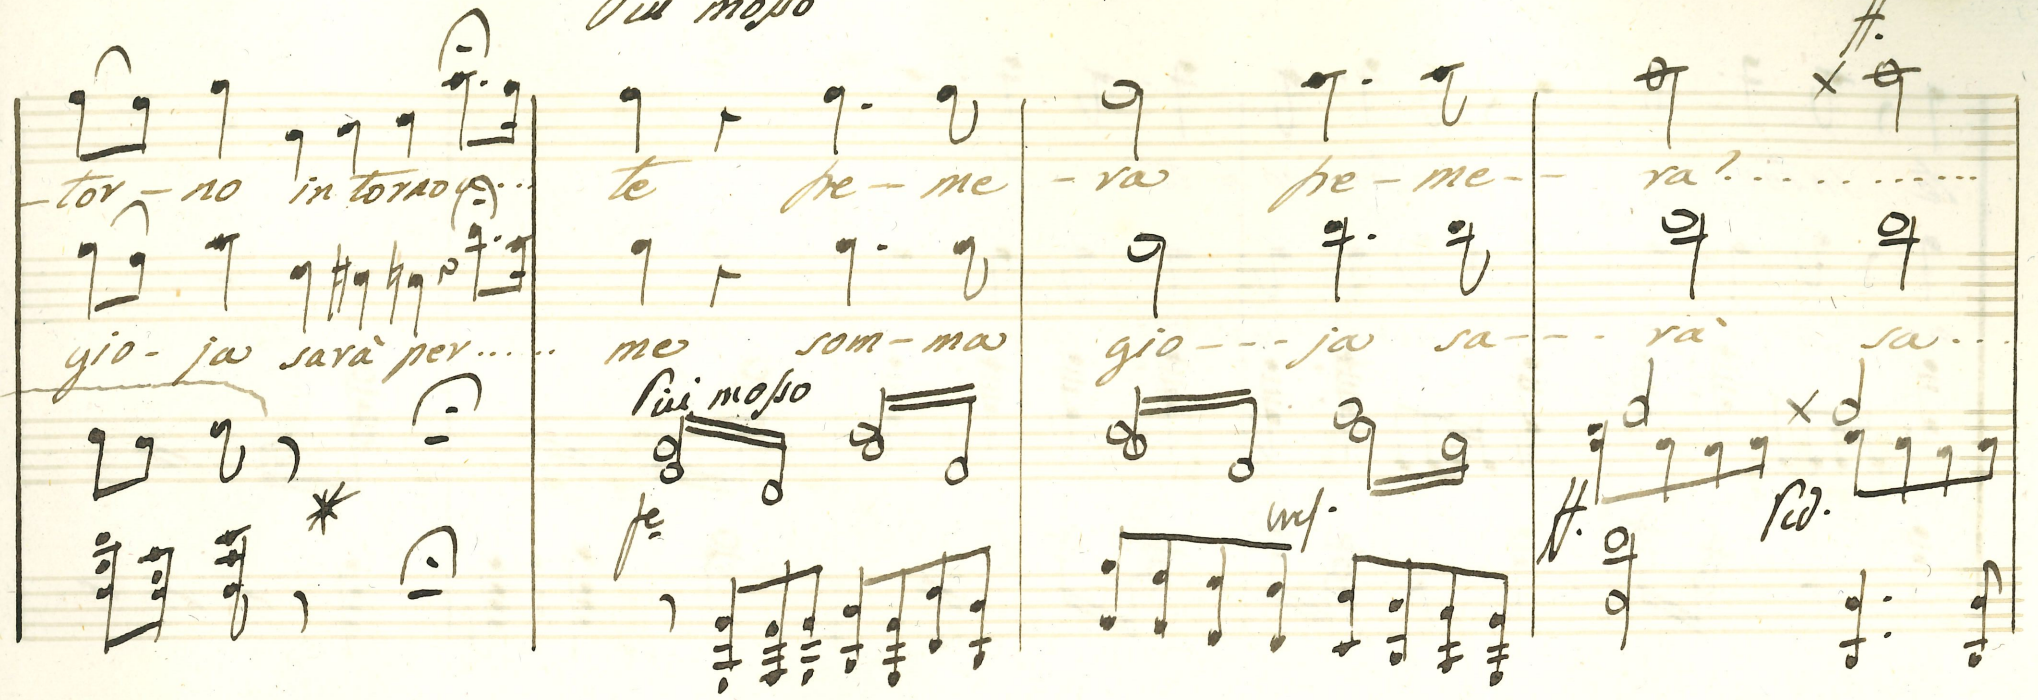 Piu mosso
ff.
tor - no in torno a... te pre - me - ra pre - me - - ra?............
gio - ja sarà per...... me som - ma gio - - - ja sa - - - rà sa...
Piu mosso
fe cres. ff. Ped.